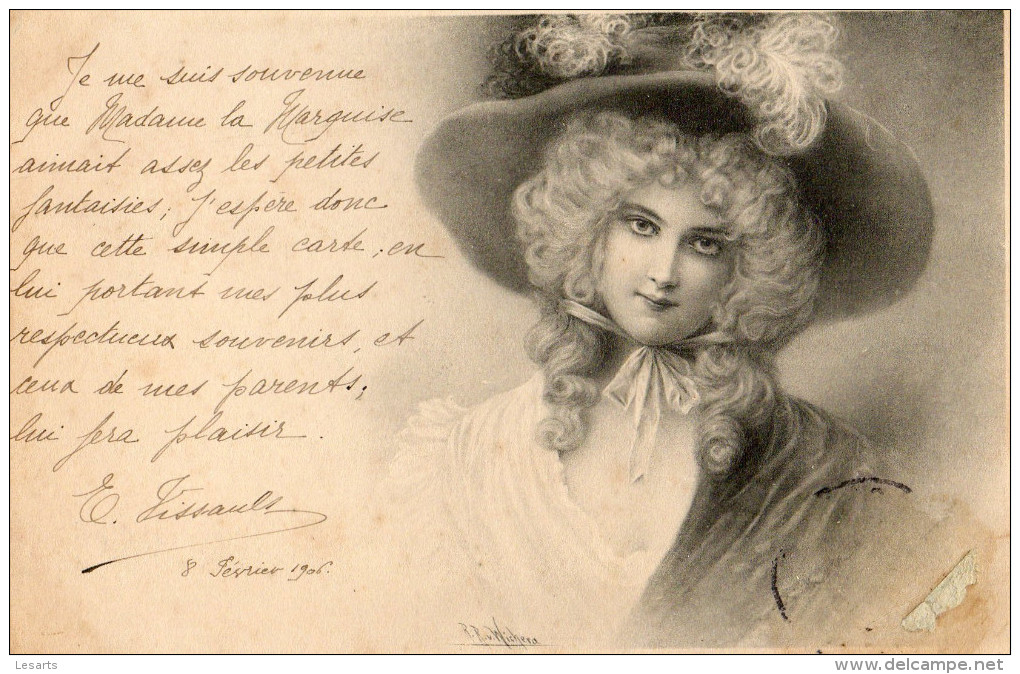 Je me suis souvenue
que Madame la Marquise
aimait assez les petites
fantaisies; j'espère donc
que cette simple carte, en
lui portant mes plus
respectueux souvenirs, et
ceux de mes parents,
lui fera plaisir.
E. Tissault
8 Février 1906.
R. R. v Wichera
Lesarts
www.delcampe.net